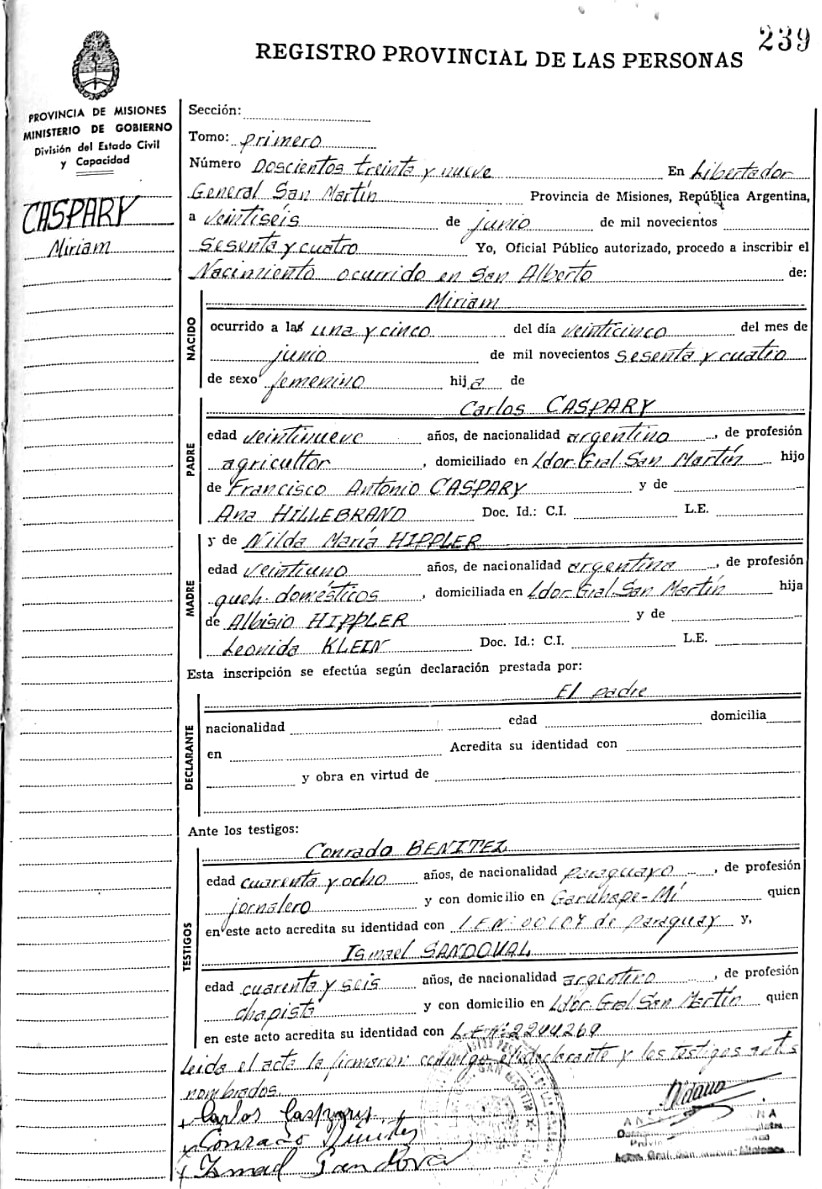 239
REGISTRO PROVINCIAL DE LAS PERSONAS
PROVINCIA DE MISIONES
MINISTERIO DE GOBIERNO
División del Estado Civil
y Capacidad
CASPARY
Miriam
Sección:
Tomo: primero
Número Doscientos treinta y nueve En Libertador
General San Martín Provincia de Misiones, República Argentina,
a veintiséis de junio de mil novecientos
sesenta y cuatro Yo, Oficial Público autorizado, procedo a inscribir el
Nacimiento ocurrido en San Alberto de:
NACIDO
Miriam
ocurrido a las una y cinco del día veinticinco del mes de
junio de mil novecientos sesenta y cuatro
de sexo femenino hija de
PADRE
Carlos CASPARY
edad veintinueve años, de nacionalidad argentino, de profesión
agricultor, domiciliado en Ldor. Gral. San Martín hijo
de Francisco Antonio CASPARY y de
Ana HILLEBRAND Doc. Id.: C.I. L.E.
MADRE
y de Nilda María HIPPLER
edad veintiuno años, de nacionalidad argentina, de profesión
queh. domésticos, domiciliada en Ldor. Gral. San Martín hija
de Albisio HIPPLER y de
Leonida KLEIN Doc. Id.: C.I. L.E.
Esta inscripción se efectúa según declaración prestada por:
DECLARANTE
El padre
nacionalidad edad domicilia
en Acredita su identidad con
y obra en virtud de
Ante los testigos:
TESTIGOS
Conrado BENITEZ
edad cuarenta y ocho años, de nacionalidad paraguayo, de profesión
jornalero y con domicilio en Garuhape-Mí quien
en este acto acredita su identidad con de Paraguay y,
Ismael SANDOVAL
edad cuarenta y seis años, de nacionalidad argentino, de profesión
chapista y con domicilio en Ldor. Gral. San Martín quien
en este acto acredita su identidad con L.E. Nº 2244269
Leida el acta la firmaron conmigo el declarante y los testigos
nombrados
Carlos Caspary
Conrado Benitez
Ismael Sandoval